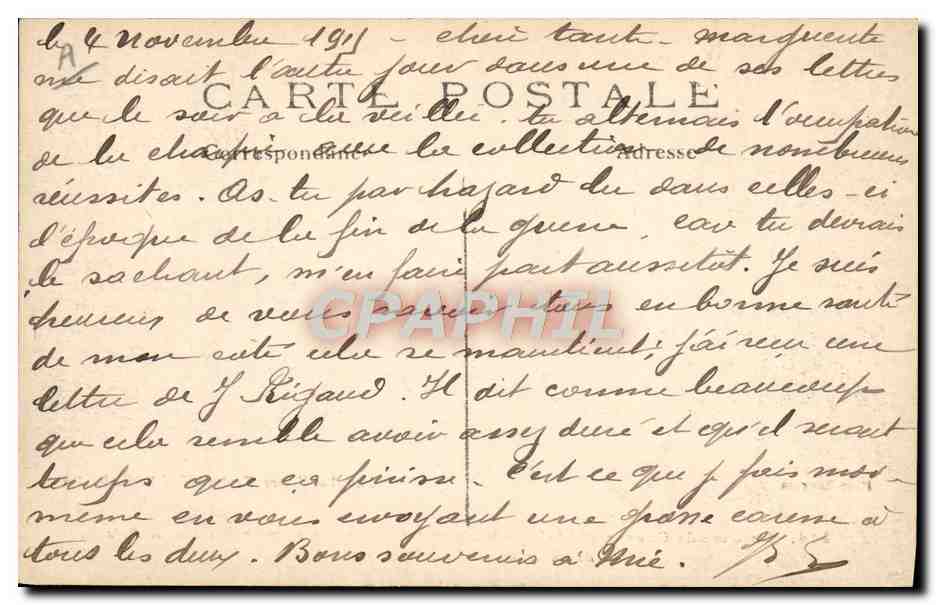 le 4 novembre 1915 - chère tante - marguerite
A
me disait l'autre jour dans une de ses lettres
CARTE POSTALE
que le soir à la veillée tu alternais l'occupation
Correspondance
Adresse
de la avec la collection de nombreuses
réussites. As-tu par hazard lu dans celles-ci
l'époque de la fin de la guerre, car tu devrais
le sachant, m'en faire part aussitôt. Je suis
CPAPHIL
heureux de vous savoir tous en bonne santé
de mon côté cela se maintient; j'ai reçu une
lettre de J Rigaud. Il dit comme beaucoup
que cela semble avoir assez duré et qu'il serait
temps que ça finisse. C'est ce que je fais moi-
même en vous envoyant une grosse caresse à
tous les deux. Bons souvenirs à Mié.